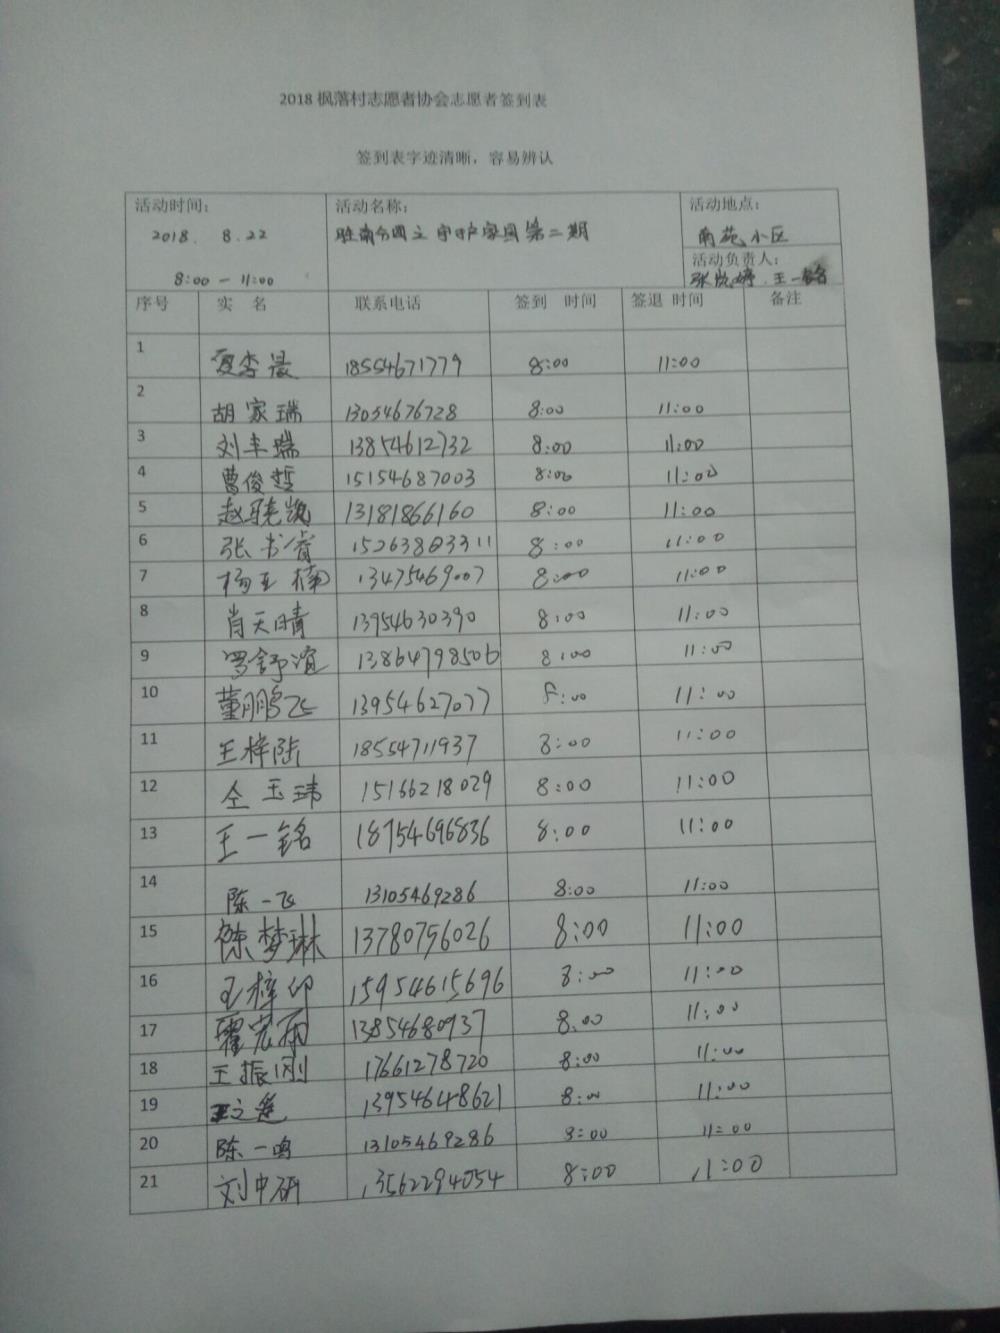 2018 枫落村志愿者协会志愿者签到表
签到表字迹清晰，容易辨认
活动时间： 活动名称： 活动地点：
2018. 8.22 守护家园第二期 南苑小区
活动负责人：
8:00 — 11:00 王一铭
序号 实 名 联系电话 签到 时间 签退 时间 备注
1 夏李晨 18554671779 8:00 11:00
2 胡家瑞 13054676728 8:00 11:00
3 刘丰瑞 13854612732 8:00 11:00
4 曹俊哲 15154687003 8:00 11:00
5 赵骁凯 13181866160 8:00 11:00
6 张书睿 15263803311 8:00 11:00
7 杨王楠 13475469007 8:00 11:00
8 肖天晴 13954630390 8:00 11:00
9 罗舒谊 13864798506 8:00 11:00
10 董鹏飞 13954627077 8:00 11:00
11 王梓陆 18554711937 8:00 11:00
12 仝玉玮 15166218029 8:00 11:00
13 王一铭 18754696836 8:00 11:00
14 陈一飞 13105469286 8:00 11:00
15 陈梦琳 13780756026 8:00 11:00
16 王梓卬 15954615696 8:00 11:00
17 霍宏雨 13854680937 8:00 11:00
18 王振刚 17661278720 8:00 11:00
19 王之莲 13954648621 8:00 11:00
20 陈一鸣 13105469286 8:00 11:00
21 刘中研 13562294054 8:00 11:00